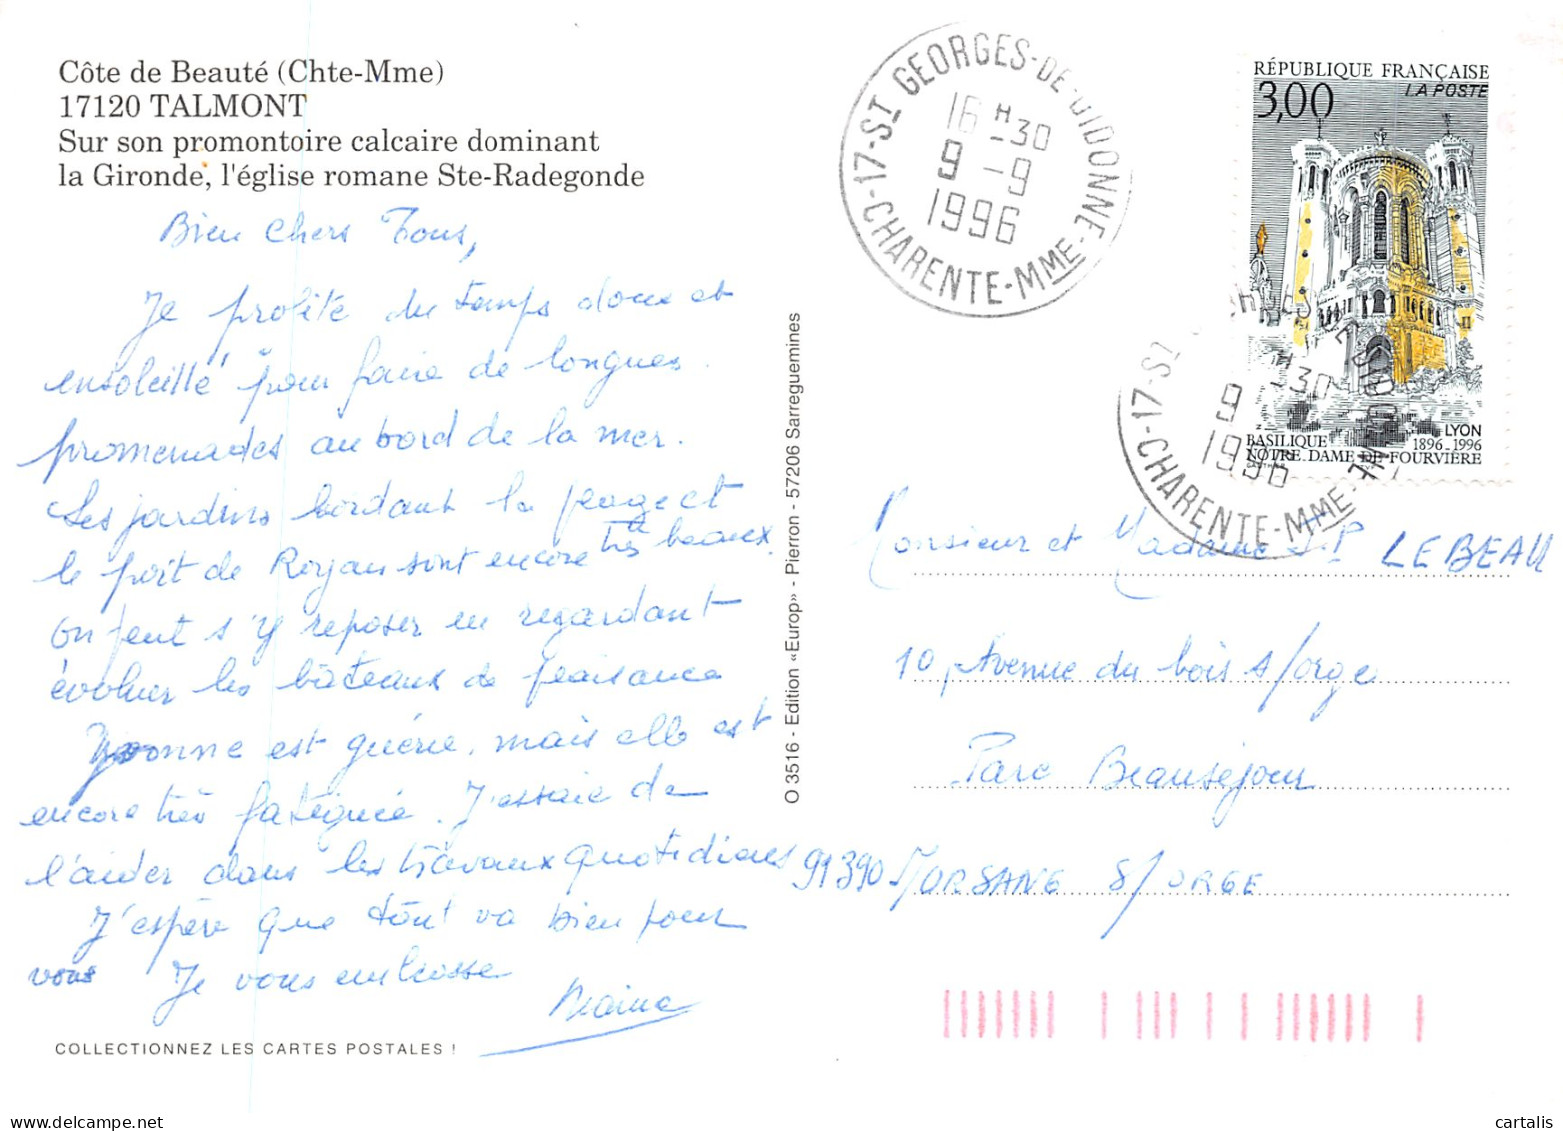 Côte de Beauté (Chte-Mme)
17120 TALMONT
Sur son promontoire calcaire dominant
la Gironde, l'église romane Ste-Radegonde
Bien chers Tous,
Je profite du temps doux et
ensoleillé pour faire de longues
promenades au bord de la mer.
Les jardins bordant la plage et
le port de Royan sont encore très beaux.
on peut s'y reposer en regardant
évoluer les bâteaux de plaisance
Yvonne est guérie, mais elle est
encore très fatiguée. J'essaie de
l'aider dans les travaux quotidiens
J'espère que tout va bien pour
vous Je vous embrasse
COLLECTIONNEZ LES CARTES POSTALES !
O 3516 - Edition «Europ» - Pierron - 57206 Sarreguemines
17-ST GEORGES-DE-DIDONNE
16 H-30
9 -9
1996
CHARENTE-MME
RÉPUBLIQUE FRANÇAISE
3,00 LA POSTE
LYON
BASILIQUE 1896-1996
NOTRE-DAME DE FOURVIÈRE
17-ST
H 30
9
1996
CHARENTE-MME
Monsieur et Madame J.P LEBEAU
10, Avenue du bois s/orge
Parc Beauséjour
91390 MORSANG S/ ORGE